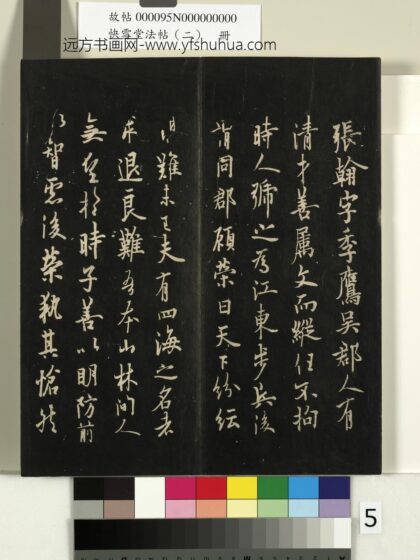 故帖 000095N000000000
快雪堂法帖（二） 册
远方书画网-www.yfshuhua.com
張翰字季鷹吳郡人有
清才善属文而縱任不拘
時人號之為江東步兵後
謂同郡顧榮曰天下紛紜
禍難未已夫有四海之名者
求退良難吾本山林間人
無望於時子善以明防前
以智慮後榮執其愴然
5